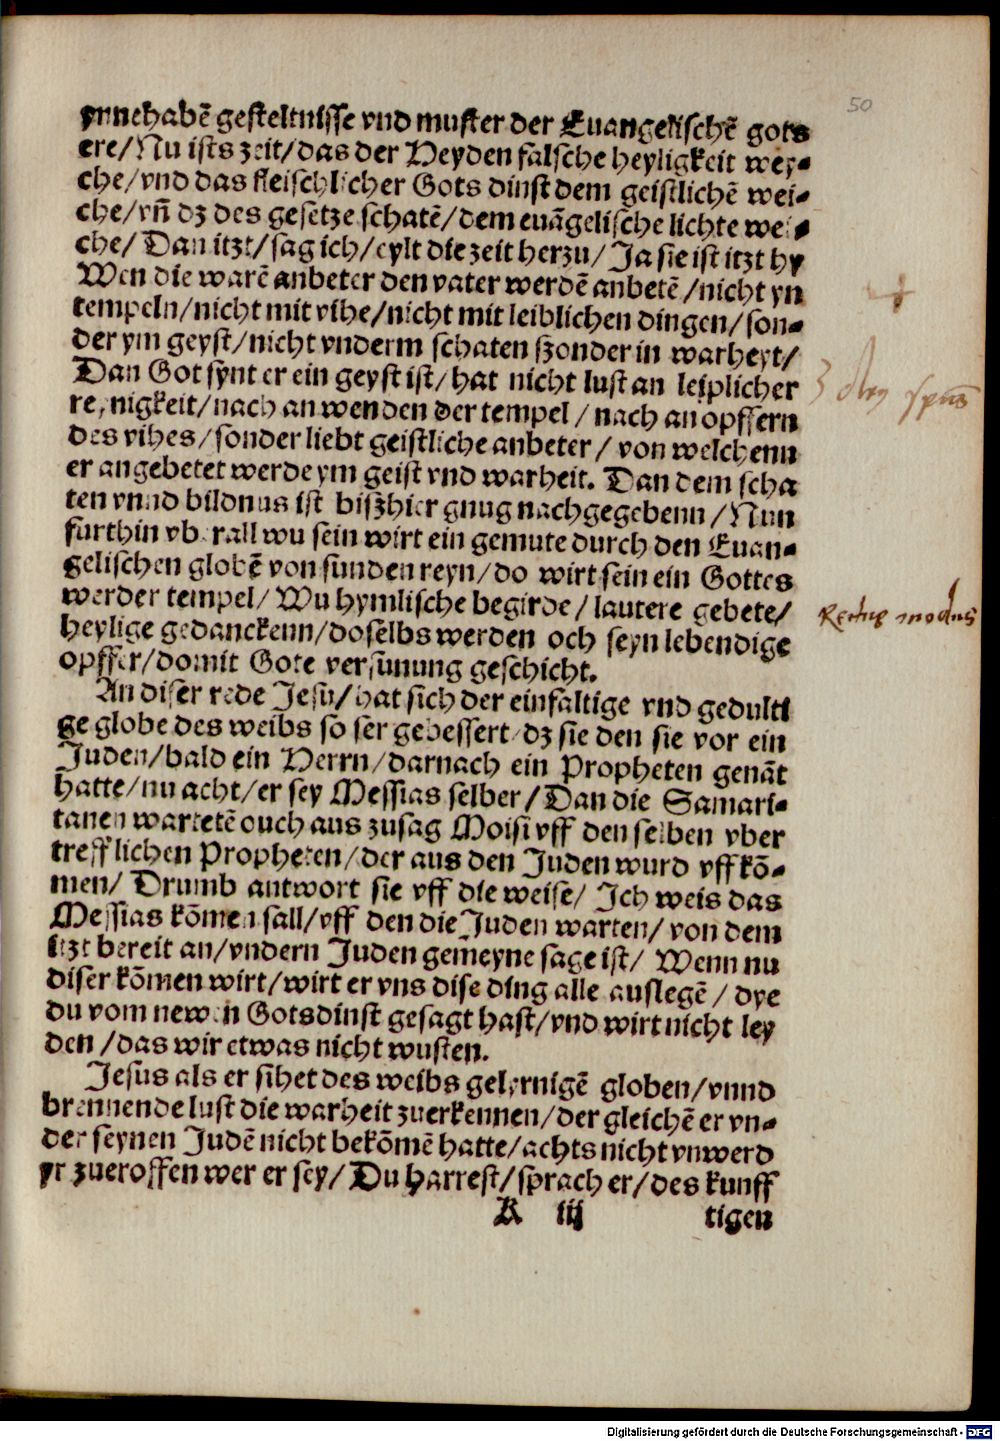 50
ynnehabē gesteltnisse vnd muster der Euangelischē gots
ere/Nu ists zeit/das der Heyden falsche heyligkeit wey-
che/vnd das fleischlicher Gots dinst dem geistlichē wei-
che/vn̄ dz des gesetze schatē/dem euāgelische lichte wei-
che/Dan itzt/sag ich/eylt die zeit herzu/Ja sie ist itzt hy
Wen die warē anbeter den vater werdē anbetē/nicht yn
tempeln/nicht mit vihe/nicht mit leiblichen dingen/son-
der ym geyst/nicht vnderm schaten szonder in warheyt/
Dan Got synt er ein geyst ist/hat nicht lust an leiplicher
reynigkeit/nach an wenden der tempel/nach an opffern
des vihes/sonder liebt geistliche anbeter/von welchenn
er angebetet werde ym geist vnd warheit. Dan dem scha
ten vnnd bildnus ist biszhier gnug nachgegebenn/Nun
furthin vberall wu sein wirt ein gemute durch den Euan-
gelischen globē von sunden reyn/do wirt sein ein Gottes
werder tempel/Wu hymlische begirde/lautere gebete/
heylige gedanckenn/doselbs werden och seyn lebendige
opffer/domit Gote versunung geschicht.
An diser rede Jesu/hat sich der einfaltige vnd gedulti
ge globe des weibs so ser gebessert/dz sie den sie vor ein
Juden/bald ein Herrn/darnach ein Propheten genāt
hatte/nu acht/er sey Messias selber/Dan die Samari-
tanen wartetē ouch aus zusag Moisi vff den selben vber
trefflichen Propheten/der aus den Juden wurd vffkō-
men/Drumb antwort sie vff die weise/Ich weis das
Messias kōmen sall/vff den die Juden warten/von dem
itzt bereit an/vndern Juden gemeyne sage ist/Wenn nu
diser kōmen wirt/wirt er vns dise ding alle auslegē/dye
du vom newen Gotsdinst gesagt hast/vnd wirt nicht ley
den/das wir etwas nicht wusten.
Jesus als er sihet des weibs gelyrnigē globen/vnnd
brennende lust die warheit zuerkennen/der gleichē er vn-
der seynen Judē nicht bekōmē hatte/achts nicht vnwerd
yr zueroffen wer er sey/Du harrest/sprach er/des kunff
K iij tigen
Digitalisierung gefördert durch die Deutsche Forschungsgemeinschaft - DFG